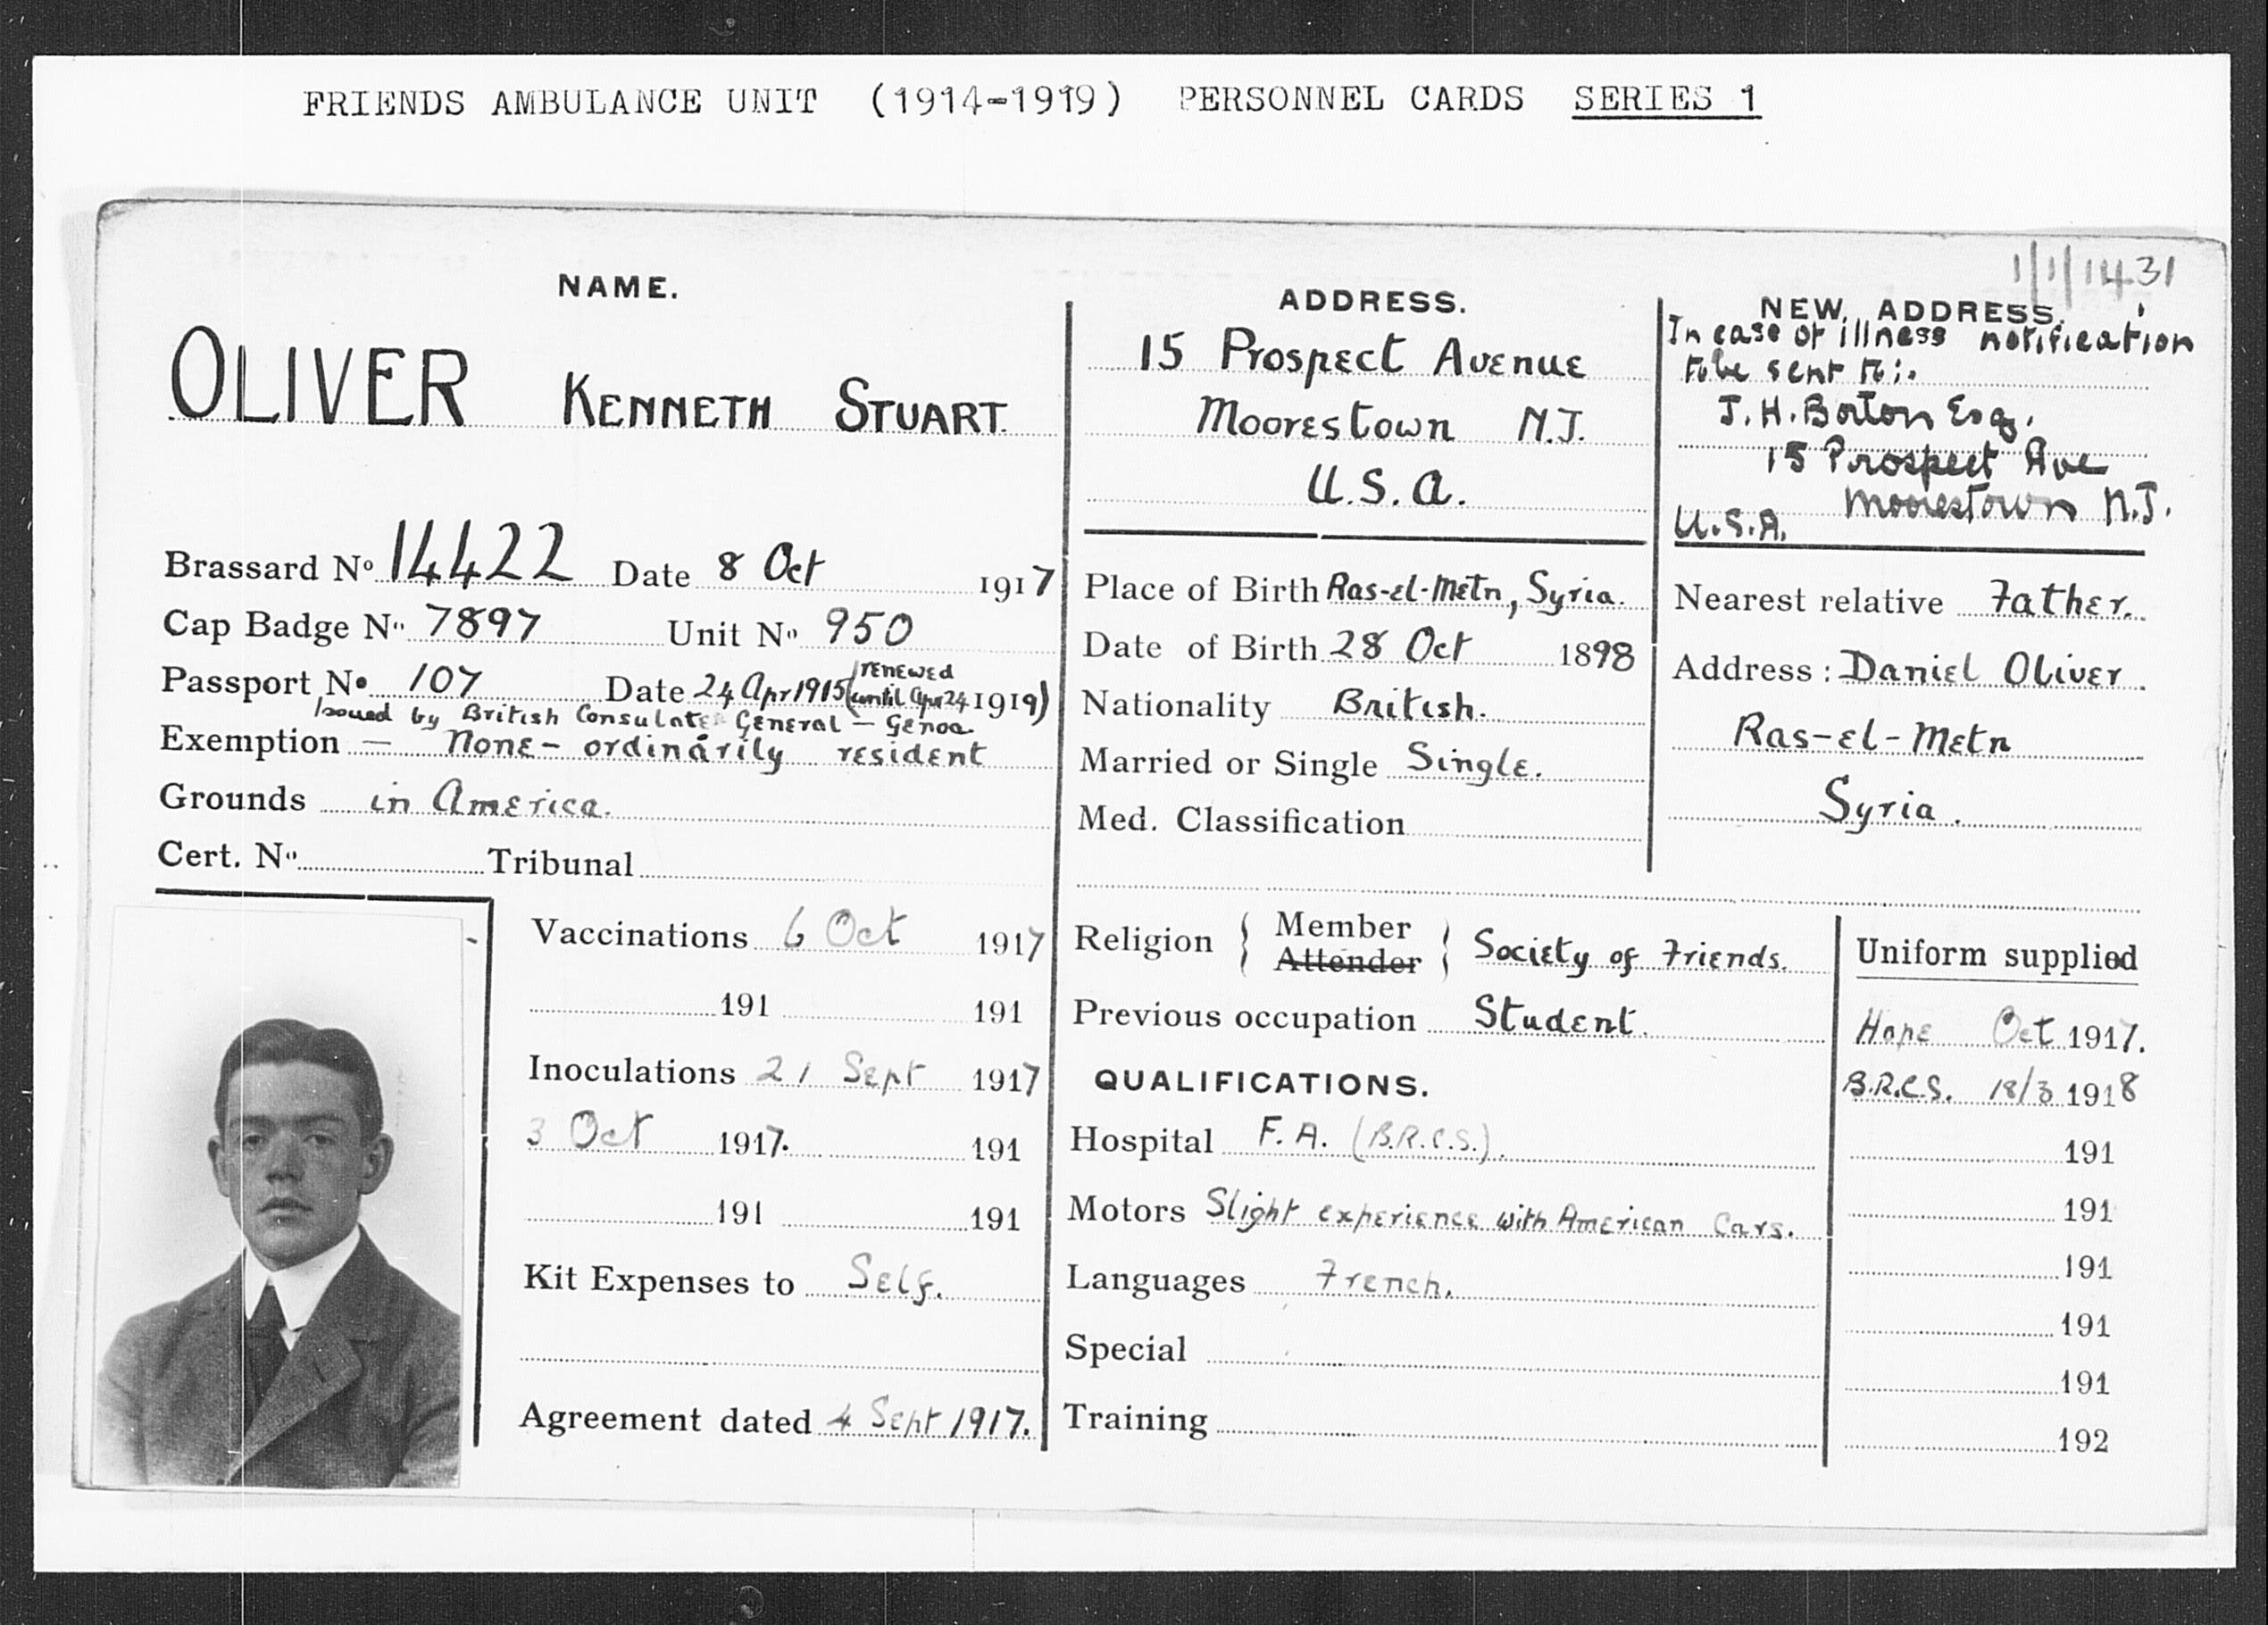 FRIENDS AMBULANCE UNIT (1914-1919) PERSONNEL CARDS SERIES 1
1/1/1431
NAME.
OLIVER KENNETH STUART.
Brassard No. 14422 Date 8 Oct 1917
Cap Badge No. 7897 Unit No. 950
Passport No. 107 Date 24 Apr 1915 (renewed until Apr 24 1919)
Issued by British Consulate General – Genoa.
Exemption — None – ordinarily resident
Grounds in America.
Cert. No. Tribunal
Vaccinations 6 Oct 1917
191 191
Inoculations 21 Sept 1917
3 Oct 1917. 191
191 191
Kit Expenses to Self.
Agreement dated 4 Sept 1917.
ADDRESS.
15 Prospect Avenue
Moorestown N.J.
U.S.A.
Place of Birth Ras-el-Metn, Syria.
Date of Birth 28 Oct 1898
Nationality British.
Married or Single Single.
Med. Classification
NEW ADDRESS.
In case of illness notification
to be sent to:.
J. H. Borton Esq.
15 Prospect Ave
Moorestown N.J.
U.S.A.
Nearest relative Father.
Address: Daniel Oliver.
Ras-el-Metn
Syria.
Religion { Member Attender } Society of Friends.
Previous occupation Student.
QUALIFICATIONS.
Hospital F.A. (B.R.C.S.).
Motors Slight experience with American Cars.
Languages French.
Special
Training
Uniform supplied
Hope Oct 1917.
B.R.C.S. 18/3 1918
191
191
191
191
191
192